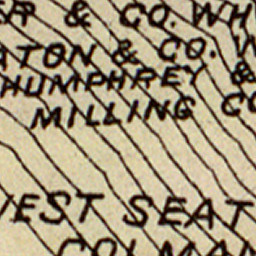 & CO. WH
ATON & CO. W
HUMPHREY &
MILLING CO
WEST SEAT
COLMAN